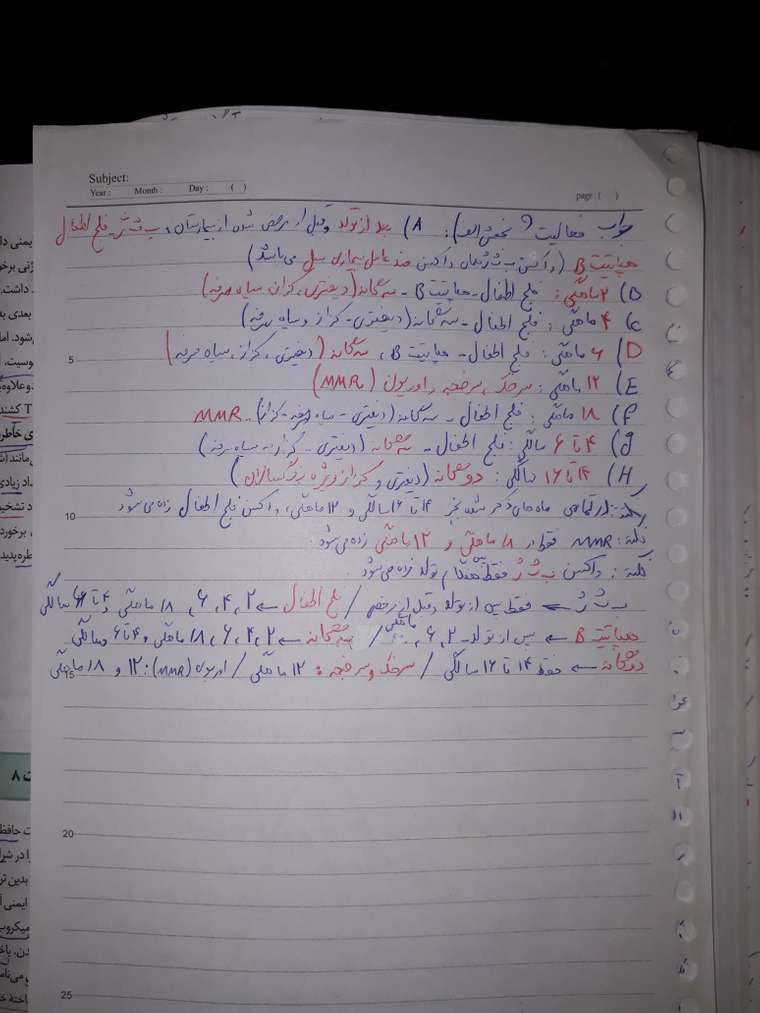 Subject:
Year : Month : Day : ( )
page : ( )
جواب فعالیت ۹ بخش الف): A) بعد از تولد و قبل از مرخص شدن از بیمارستان: ب ث ژ - فلج اطفال
هپاتیت B (واکسن ب ث ژ همان واکسن ضد عامل بیماری سل می‌باشد)
B) ۲ ماهگی: فلج اطفال - هپاتیت B - سه گانه (دیفتری، کزاز، سیاه سرفه)
C) ۴ ماهگی: فلج اطفال - سه گانه (دیفتری - کزاز و سیاه سرفه)
5 D) ۶ ماهگی: فلج اطفال - هپاتیت B، سه گانه (دیفتری، کزاز، سیاه سرفه)
E) ۱۲ ماهگی: سرخک، سرخجه و اوریون (MMR)
F) ۱۸ ماهگی: فلج اطفال - سه گانه (دیفتری - سیاه سرفه - کزاز) - MMR
g) ۴ تا ۶ سالگی: فلج اطفال - سه گانه (دیفتری - کزاز - سیاه سرفه)
H) ۱۴ تا ۱۶ سالگی: دوگانه (دیفتری و کزاز ویژه بزرگسالان)
10 نکته: در تمامی ماه های ذکر شده بجز ۱۴ تا ۱۶ سالگی و ۱۲ ماهگی، واکسن فلج اطفال زده می‌شود
نکته: MMR فقط در ۱۸ ماهگی و ۱۲ ماهگی زده می‌شود.
نکته: واکسن ب ث ژ فقط هنگام تولد زده می‌شود.
ب ث ژ ← فقط پس از تولد و قبل از مرخص / فلج اطفال ← ۲، ۴، ۶، ۱۸ ماهگی و ۴ تا ۶ سالگی
هپاتیت B ← پس از تولد، ۲، ۶ ماهگی / سه گانه ← ۲، ۴، ۶، ۱۸ ماهگی و ۴ تا ۶ سالگی
15 دوگانه ← فقط ۱۴ تا ۱۶ سالگی / سرخک و سرخجه: ۱۲ ماهگی / اوریون (MMR): ۱۲ و ۱۸ ماهگی
20
25